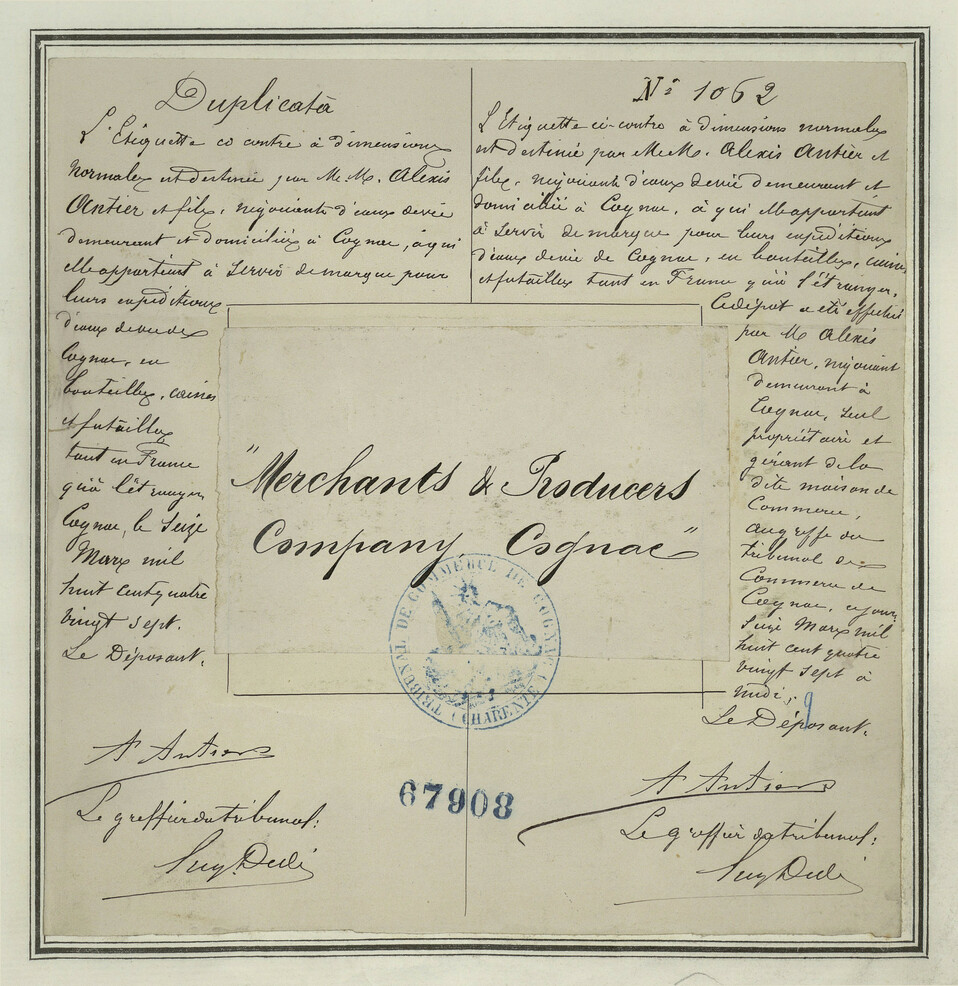 Duplicata
L'Etiquette ci contre à dimensions
normales est destinée par M.M. Alexis
Antier et fils, négociants d'eaux de vie
demeurant et domiciliés à Cognac, à qui
elle appartient à servir de marque pour
leurs expéditions
d'eaux de vie de
Cognac, en
bouteilles, caisses
et futailles
tant en France
qu'à l'étranger,
Cognac, le Seize
Mars mil
huit cent quatre
vingt sept.
Le Déposant.
A Antier
Le greffier du tribunal:
N° 1062
L'Etiquette ci-contre à dimensions normales
est destinée par M.M. Alexis Antier et
fils, négociants d'eaux de vie demeurant et
domicilié à Cognac, à qui elle appartient
à servir de marque pour leurs expéditions
d'eaux de vie de Cognac, en bouteilles, caisses
et futailles tant en France qu'à l'étranger,
Ce dépôt a été effectué
par M Alexis
Antier, négociant
demeurant à
Cognac, seul
propriétaire et
gérant de la
dite maison de
Commerce,
au greffe du
tribunal de
Commerce de
Cognac, ce jour
Seize Mars mil
huit cent quatre
vingt sept à
midi;
Le Déposant.
A Antier
Le greffier du tribunal:
"Merchants & Producers
Company, Cognac"
TRIBUNAL DE COMMERCE DE COGNAC
(CHARENTE)
67908
9